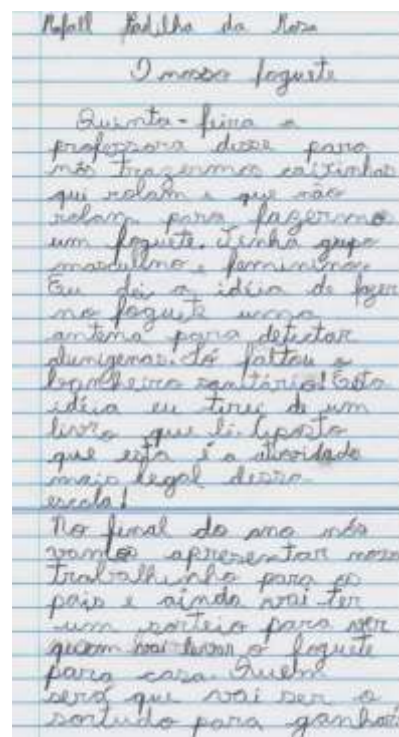 Rafael Padilha da Rosa
O nosso foguete
Quinta-feira a
professora disse para
nós trazermos caixinhas
qui rolam e que não
rolam para fazermos
um foguete. Tinha grupo
masculino e feminino.
Eu dei a idéia de fazer
no foguete uma
antena para detectar
alienígenas. Só faltou o
banheiro sanitário! Esta
idéia eu tirei de um
livro que li. Aposto
que esta é a atividade
mais legal dessa
escola!
No final do ano nós
vamos apresentar nosso
trabalhinho para os
pais e ainda vai ter
um sorteio para ver
quem vai levar o foguete
para casa. Quem
será que vai ser o
sortudo para ganhar